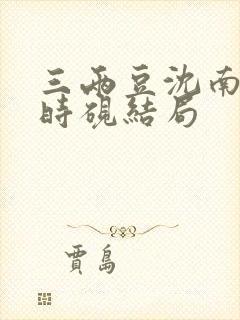 三兩豆沈南
時硯結局
賈島